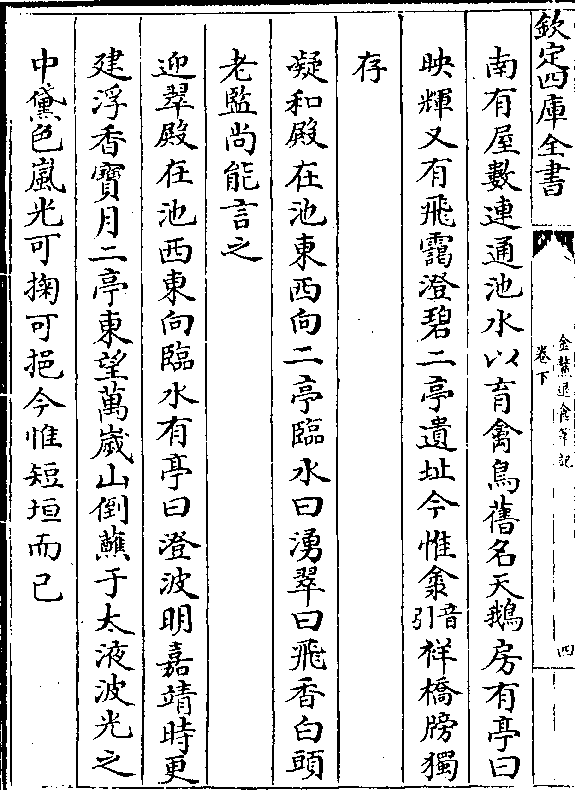 欽定四庫全書
金鰲退食筆記
卷下
四
南有屋數連通池水以育禽鳥舊名天鵝房有亭曰
映輝又有飛靄澄碧二亭遺址今惟音引祥橋牓獨
存
凝和殿在池東西向二亭臨水曰湧翠曰飛香白頭
老監尚能言之
迎翠殿在池西東向臨水有亭曰澄波明嘉靖時更
建浮香寶月二亭東望萬嵗山倒蘸于太液波光之
中黛色嵐光可掬可挹今惟短垣而已